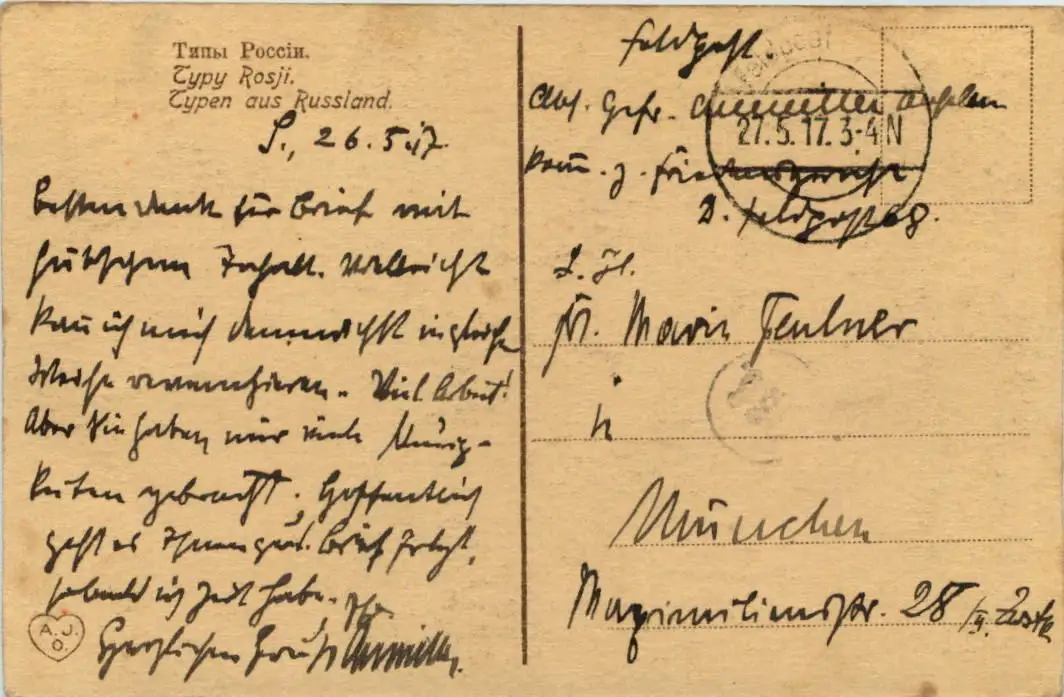 Типы Россіи.
Typy Rosji.
Typen aus Russland.
S., 26.5.17.
Besten Dank für Brief mit
hübschem Inhalt. Vielleicht
kann ich mich demnächst in gleicher
Weise revanchieren. Viel Arbeit!
Aber Sie haben mir viele
gebracht. Hoffentlich
geht es Ihnen gut. Brief folgt,
sobald ich Zeit habe.
Herzlichen Gruß Ihr
A.J.
O.
Feldpost
Feldpost
27.5.17.3-4N
Abs. Gefr.
D. Feldpost 68.
Frl. Marie Feulner
in
München
Maximilianstr. 28/II.